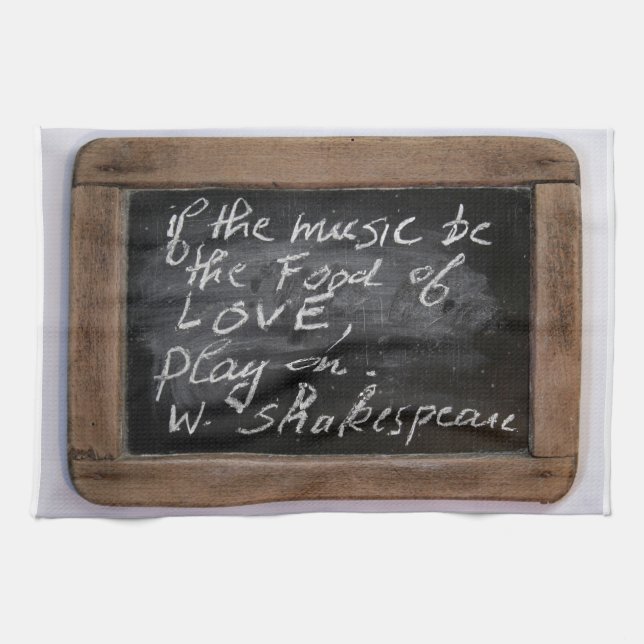 if the music be
the Food of
LOVE,
Play on.
W. Shakespeare